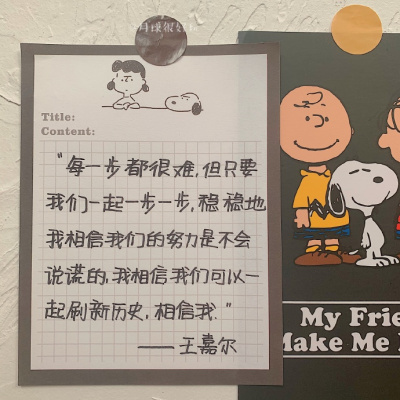 Title:
Content:
“每一步都很难,但只要
我们一起一步一步,稳稳地
我相信我们的努力是不会
说谎的,我相信我们可以一
起刷新历史,相信我.”
——王嘉尔
My Frie
Make Me